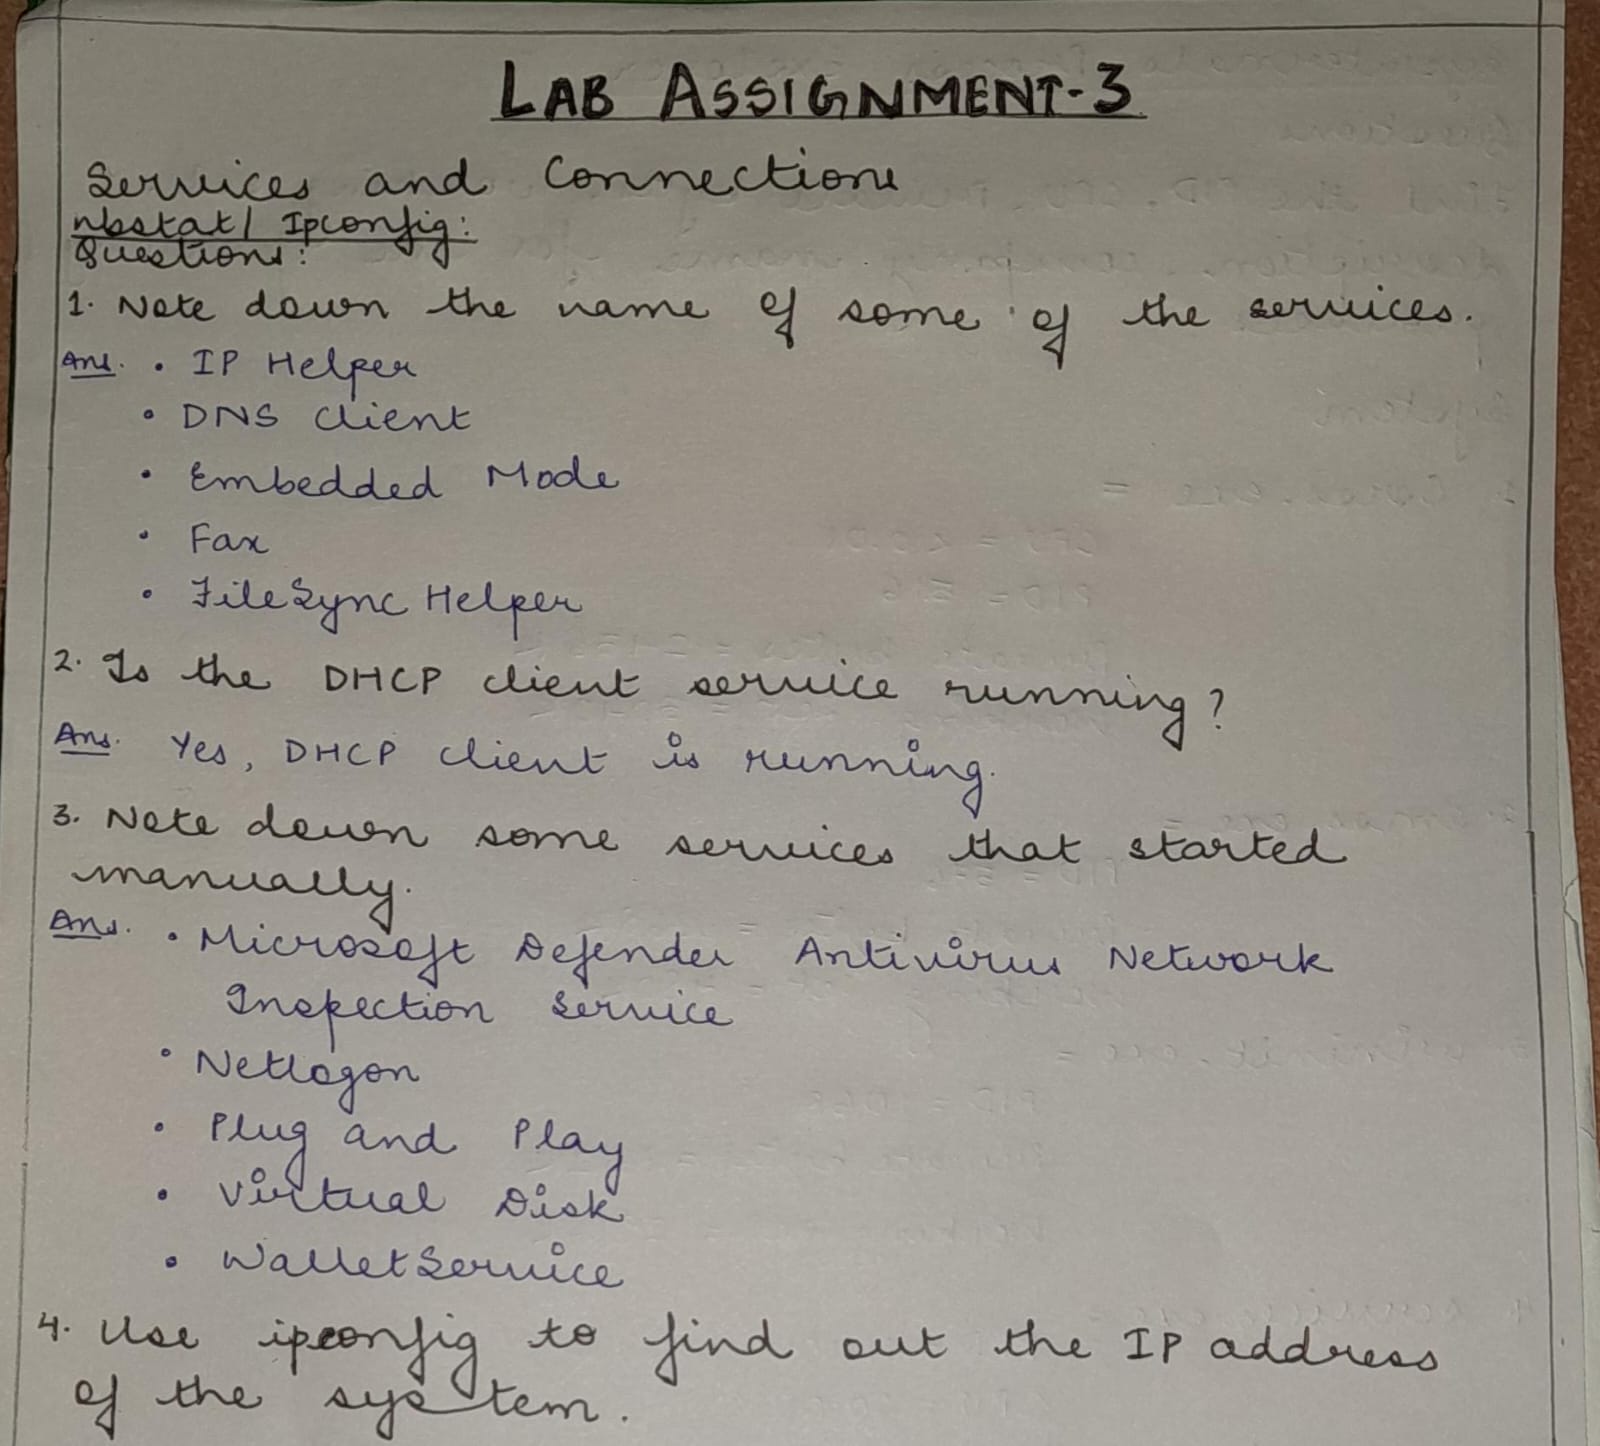 LAB ASSIGNMENT-3
Services and Connections
nbstat/ Ipconfig:
Questions:
1. Note down the name of some of the services.
Ans. • IP Helper
• DNS Client
• Embedded Mode
• Fax
• FileSync Helper
2. Is the DHCP client service running?
Ans. Yes, DHCP client is running.
3. Note down some services that started
manually.
Ans. • Microsoft Defender Antivirus Network
Inspection Service
• Netlogon
• Plug and Play
• Virtual Disk
• WalletService
4. Use ipconfig to find out the IP address
of the system.